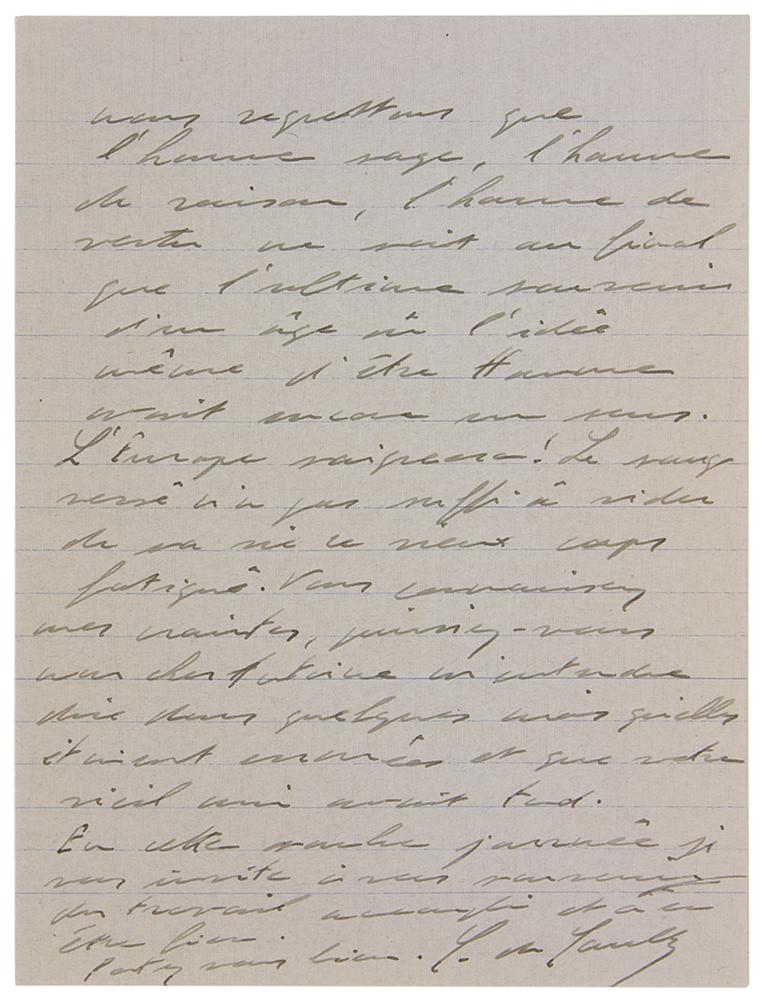 nous regrettons que
l'homme sage, l'homme
de raison, l'homme de
vertu ne soit au final
que l'ultime souvenir
d'un âge où l'idée
même d'être Homme
avait encore un sens.
L'Europe saignera! Le sang
versé n'a pas suffi à vider
de sa vie ce vieux corps
fatigué. Vous connaissez
mes craintes, puissiez-vous
mon cher Antoine m'entendre
dire dans quelques mois qu'elles
étaient erronées et que votre
vieil ami avait tord.
En cette sombre journée je
vous invite à vous souvenir
du travail accompli et à en
être fier.
Portez vous bien. C. de